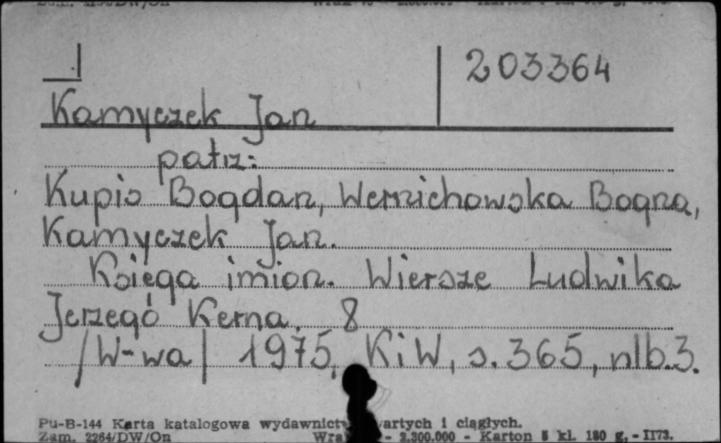 203364
Kamyczek Jan
patrz:
Kupis Bogdan, Wernichowska Bogna,
Kamyczek Jan.
Księga imion. Wiersze Ludwika
Jerzego Kerna. 8
/W-wa/ 1975, KiW, s. 365, nlb. 3.
Pu-B-144 Karta katalogowa wydawnictw zwartych i ciągłych.
Zam. 2264/DW/On - 2.300.000 - Karton 5 kl. 180 g. - II73.